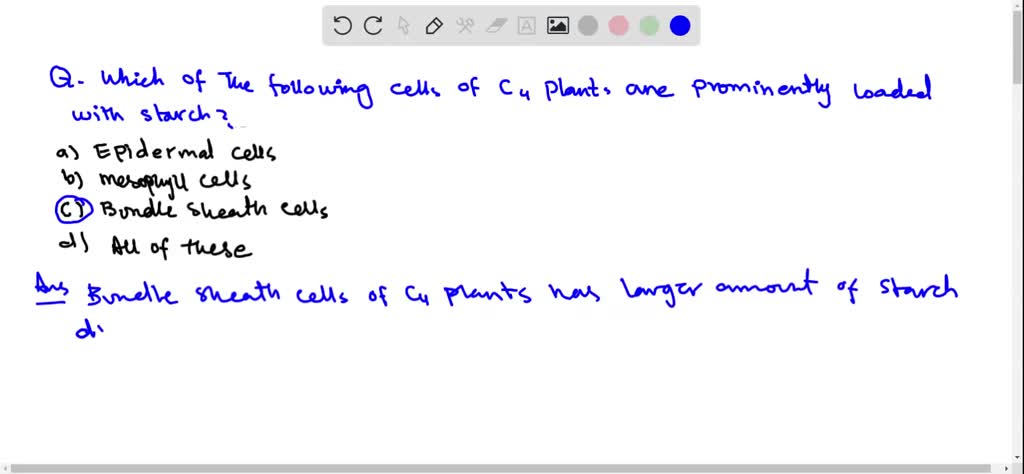 Q. Which of The following cells of C4 Plants are prominently loaded
with starch?
a) Epidermal cells
b) mesophyll cells
c) Bundle sheath cells
d) All of these
Ans Bundle sheath cells of C4 plants has larger amount of starch
di